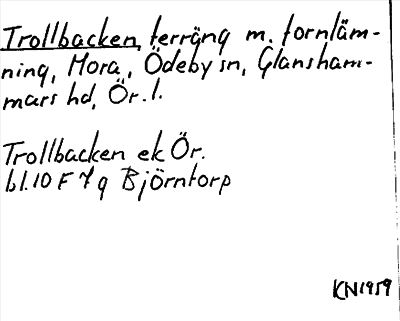 Trollbacken, terräng m. fornläm-
ning, Mora, Ödeby sn, Glansham-
mars hd, Ör. l.
Trollbacken ek Ör.
bl. 10 F 7 g Björntorp
KN1959